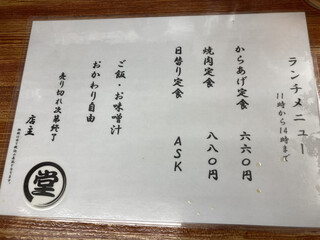 ランチメニュー
11時から14時まで
からあげ定食 六六〇円
焼肉定食 八八〇円
日替り定食 ASK
ご飯・お味噌汁
おかわり自由
売り切れ次第終了
店主
堂